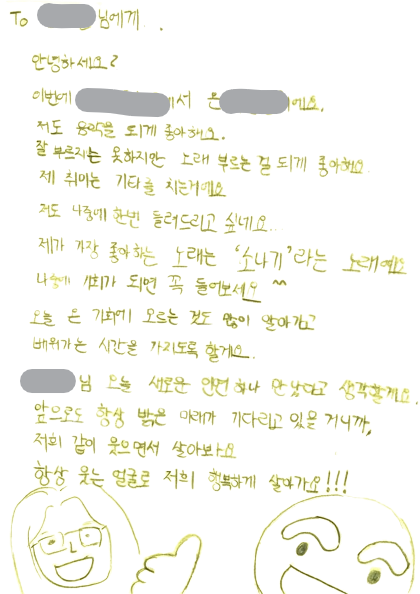 To 님에게..
안녕하세요?
이번에 에서 온 에요.
저도 음악을 되게 좋아해요.
잘 부르지는 못하지만 노래 부르는 걸 되게 좋아해요.
제 취미는 기타를 치는거에요
저도 나중에 한번 들려드리고 싶네요..
제가 가장 좋아하는 노래는 '소나기'라는 노래예요
나중에 기회가 되면 꼭 들어보세요 ^^
오늘 온 기회에 모르는 것도 많이 알아가고
배워가는 시간을 가지도록 할게요.
님 오늘 새로운 인연 하나 만났다고 생각할게요.
앞으로도 항상 밝은 미래가 기다리고 있을 거니까,
저희 같이 웃으면서 살아봐요
항상 웃는 얼굴로 저희 행복하게 살아가요!!!